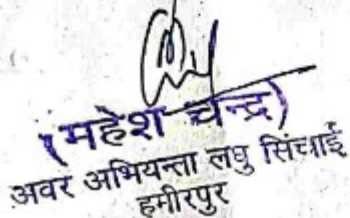 (महेश चन्द्र)
अवर अभियन्ता लघु सिंचाई
हमीरपुर